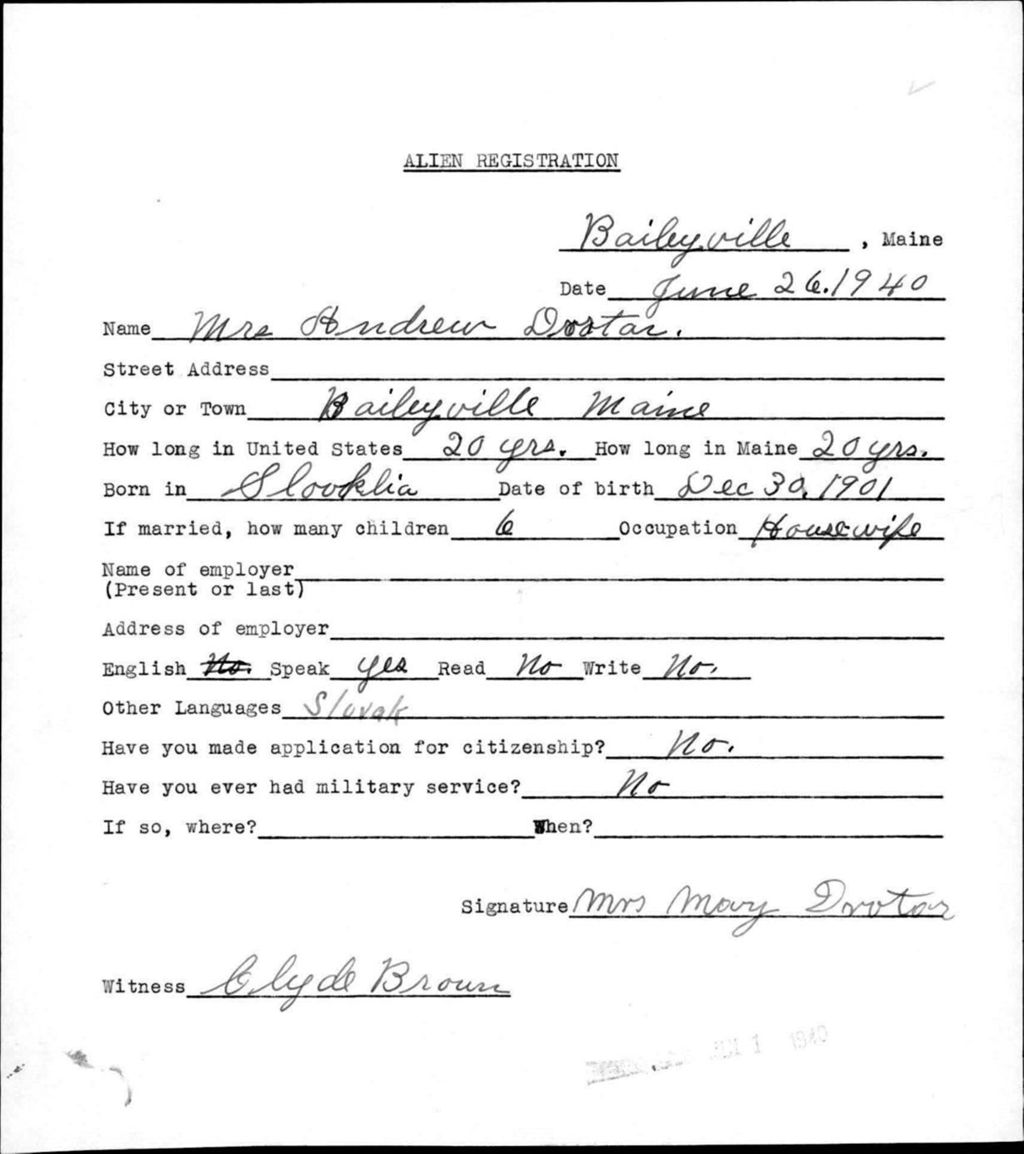 ALIEN REGISTRATION
Baileyville, Maine
Date June 26. 1940
Name Mrs Andrew Drotar.
Street Address
City or Town Baileyville Maine
How long in United States 20 yrs. How long in Maine 20 yrs.
Born in Slovoklia Date of birth Dec 30, 1901
If married, how many children 6 Occupation Housewife
Name of employer
(Present or last)
Address of employer
English No. Speak yes Read No Write No.
Other Languages Slovak
Have you made application for citizenship? No.
Have you ever had military service? No
If so, where? When?
Signature Mrs Mary Drotar
Witness Clyde Brown
1 1940